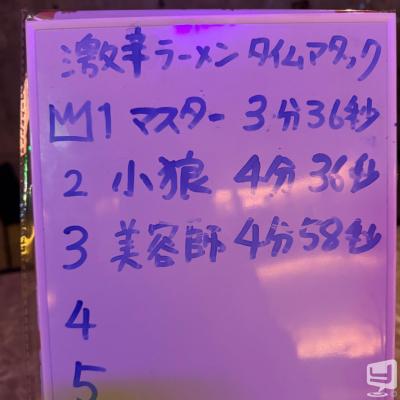 激辛ラーメンタイムアタック
1 マスター 3分36秒
2 小狼 4分36秒
3 美容師 4分58秒
4
5